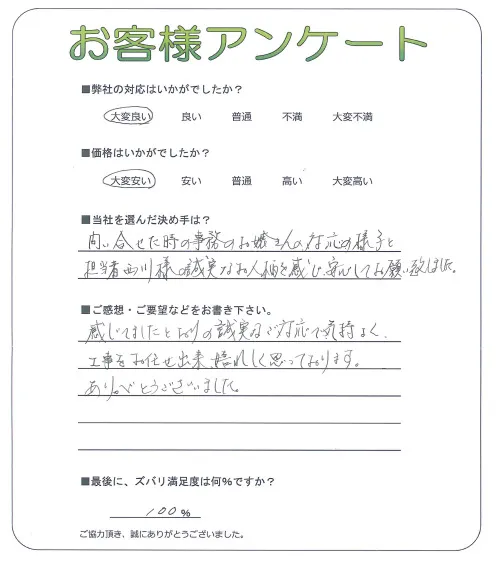 お客様アンケート
■弊社の対応はいかがでしたか？
大変良い 良い 普通 不満 大変不満
■価格はいかがでしたか？
大変安い 安い 普通 高い 大変高い
■当社を選んだ決め手は？
問い合せた時の事務のお嬢さんの対応の様子と
担当者西川様の誠実なお人柄を感じ、安心してお願い致しました。
■ご感想・ご要望などをお書き下さい。
感じてましたとおりの誠実なご対応で気持よく、
工事をお任せ出来、嬉しく思っております。
ありがとうございました。
■最後に、ズバリ満足度は何％ですか？
100％
ご協力頂き、誠にありがとうございました。